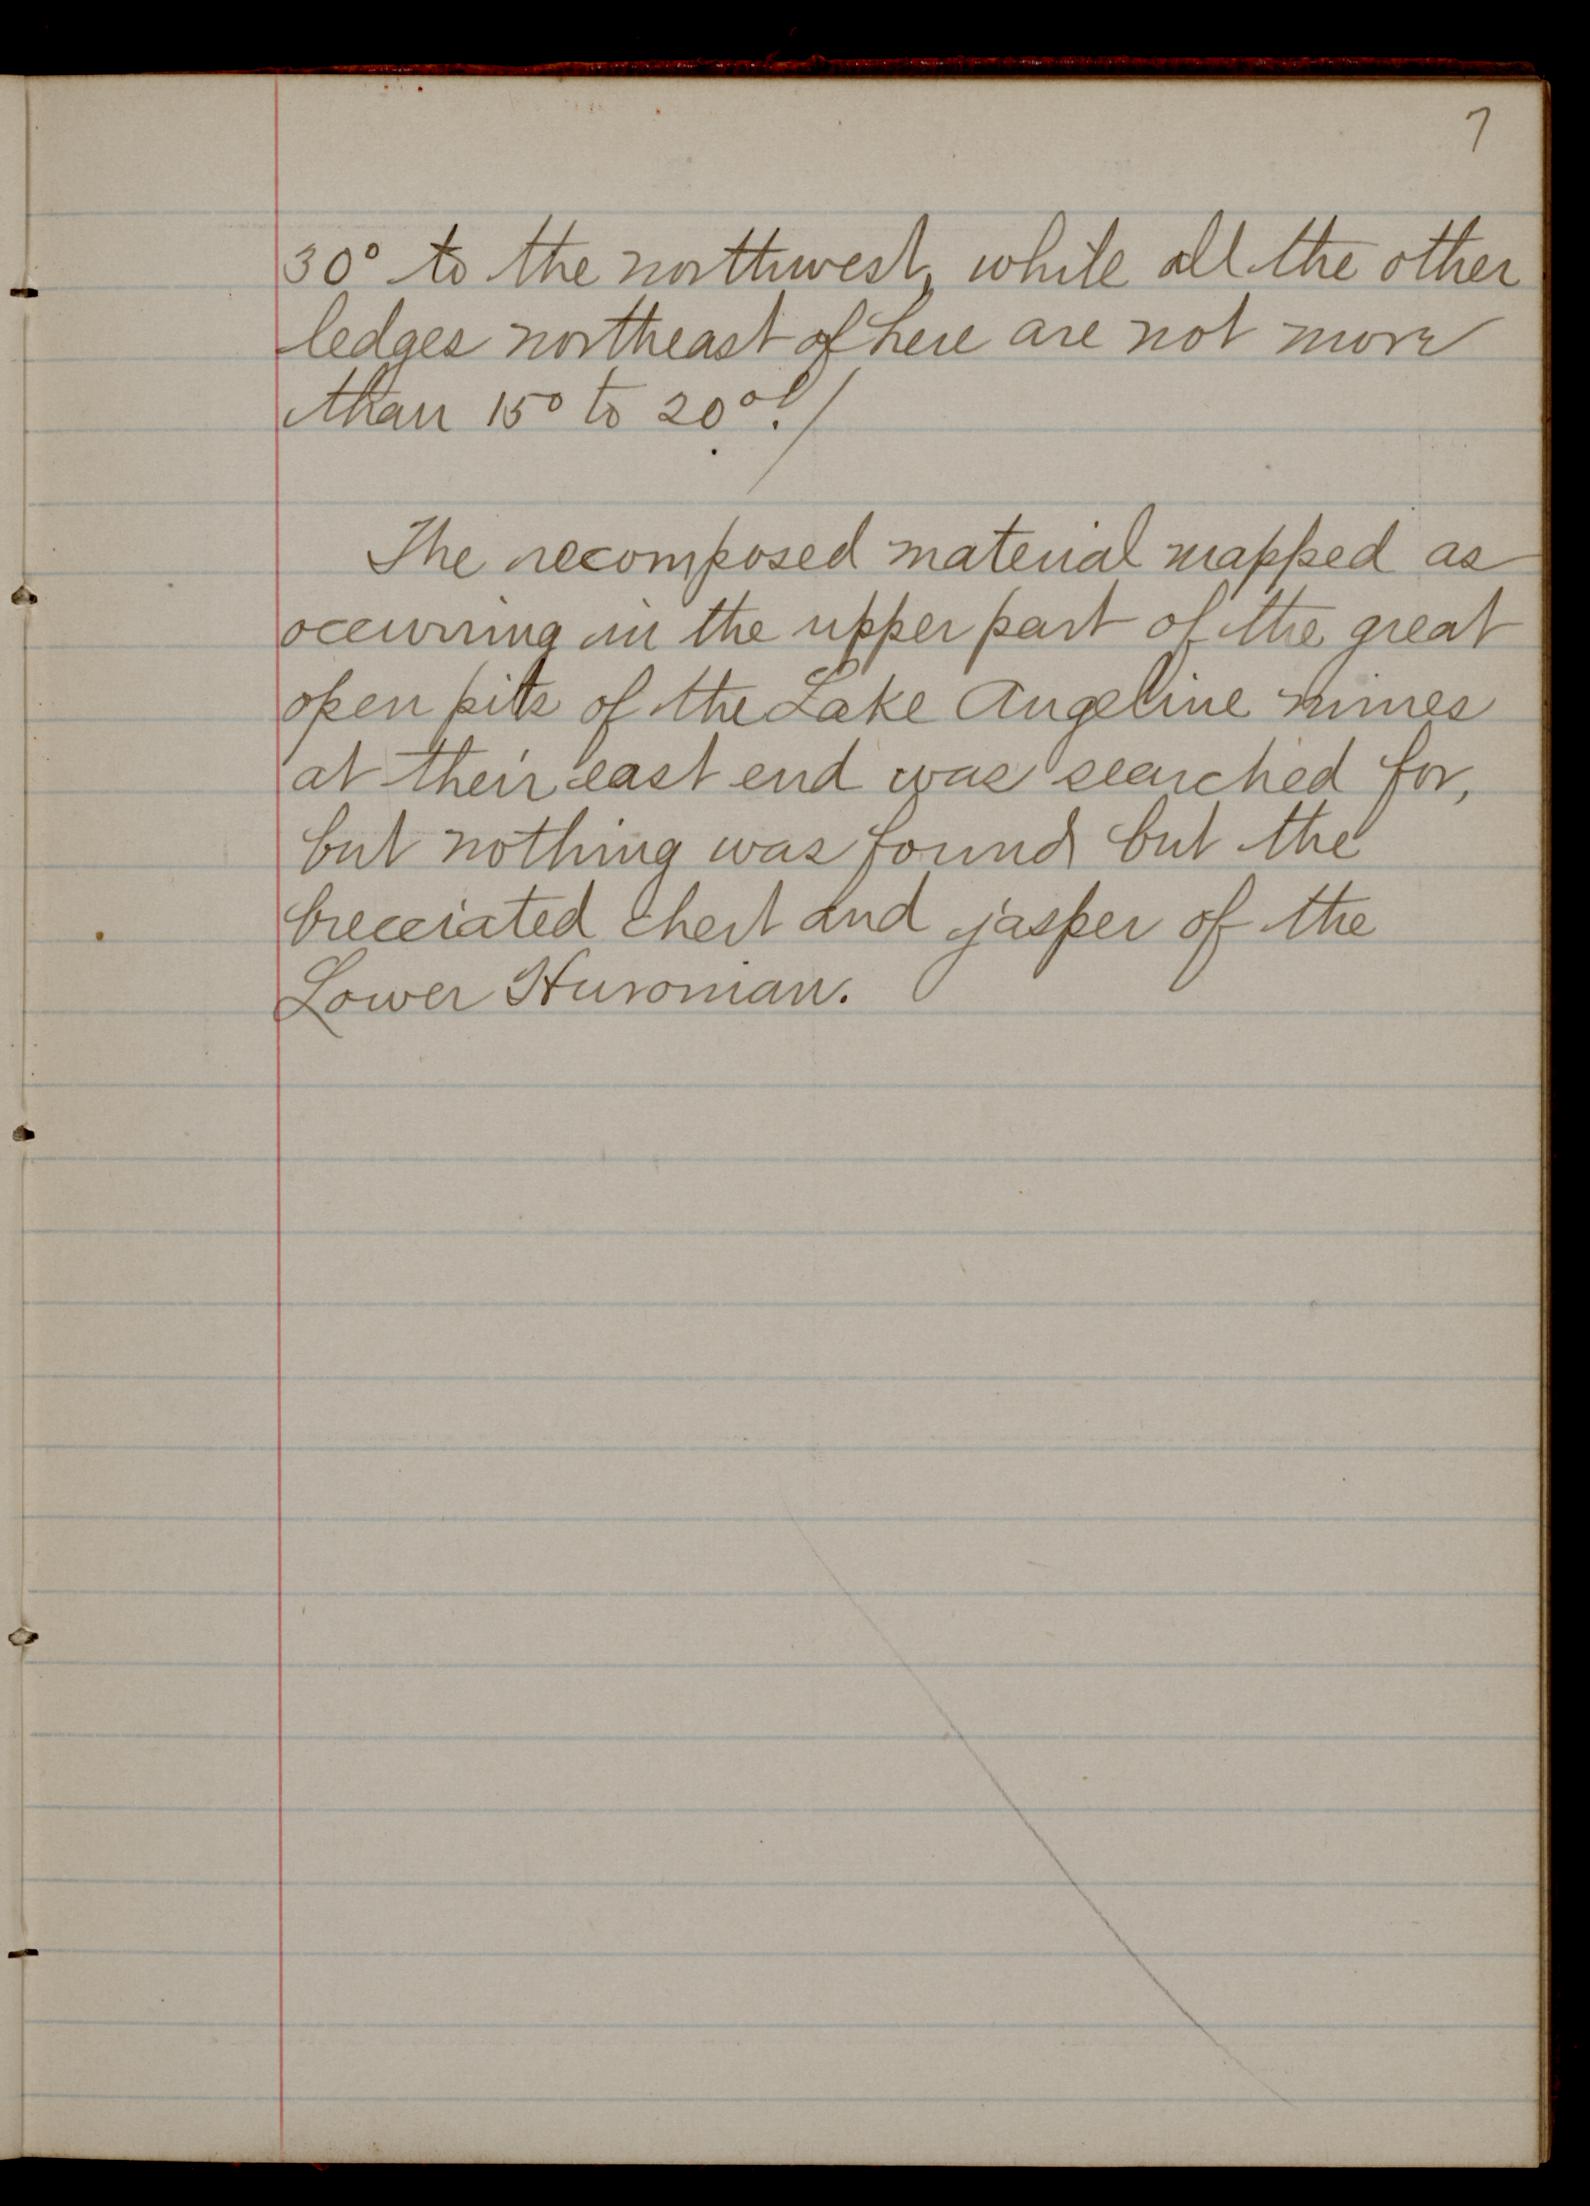 7
30° to the northwest, while all the other
ledges northeast of here are not more
than 15° to 20°!/
The recomposed material mapped as
occurring in the upper part of the great
open pits of the Lake Angeline mines
at their east end was searched for,
but nothing was found but the
brecciated chert and jasper of the
Lower Huronian.